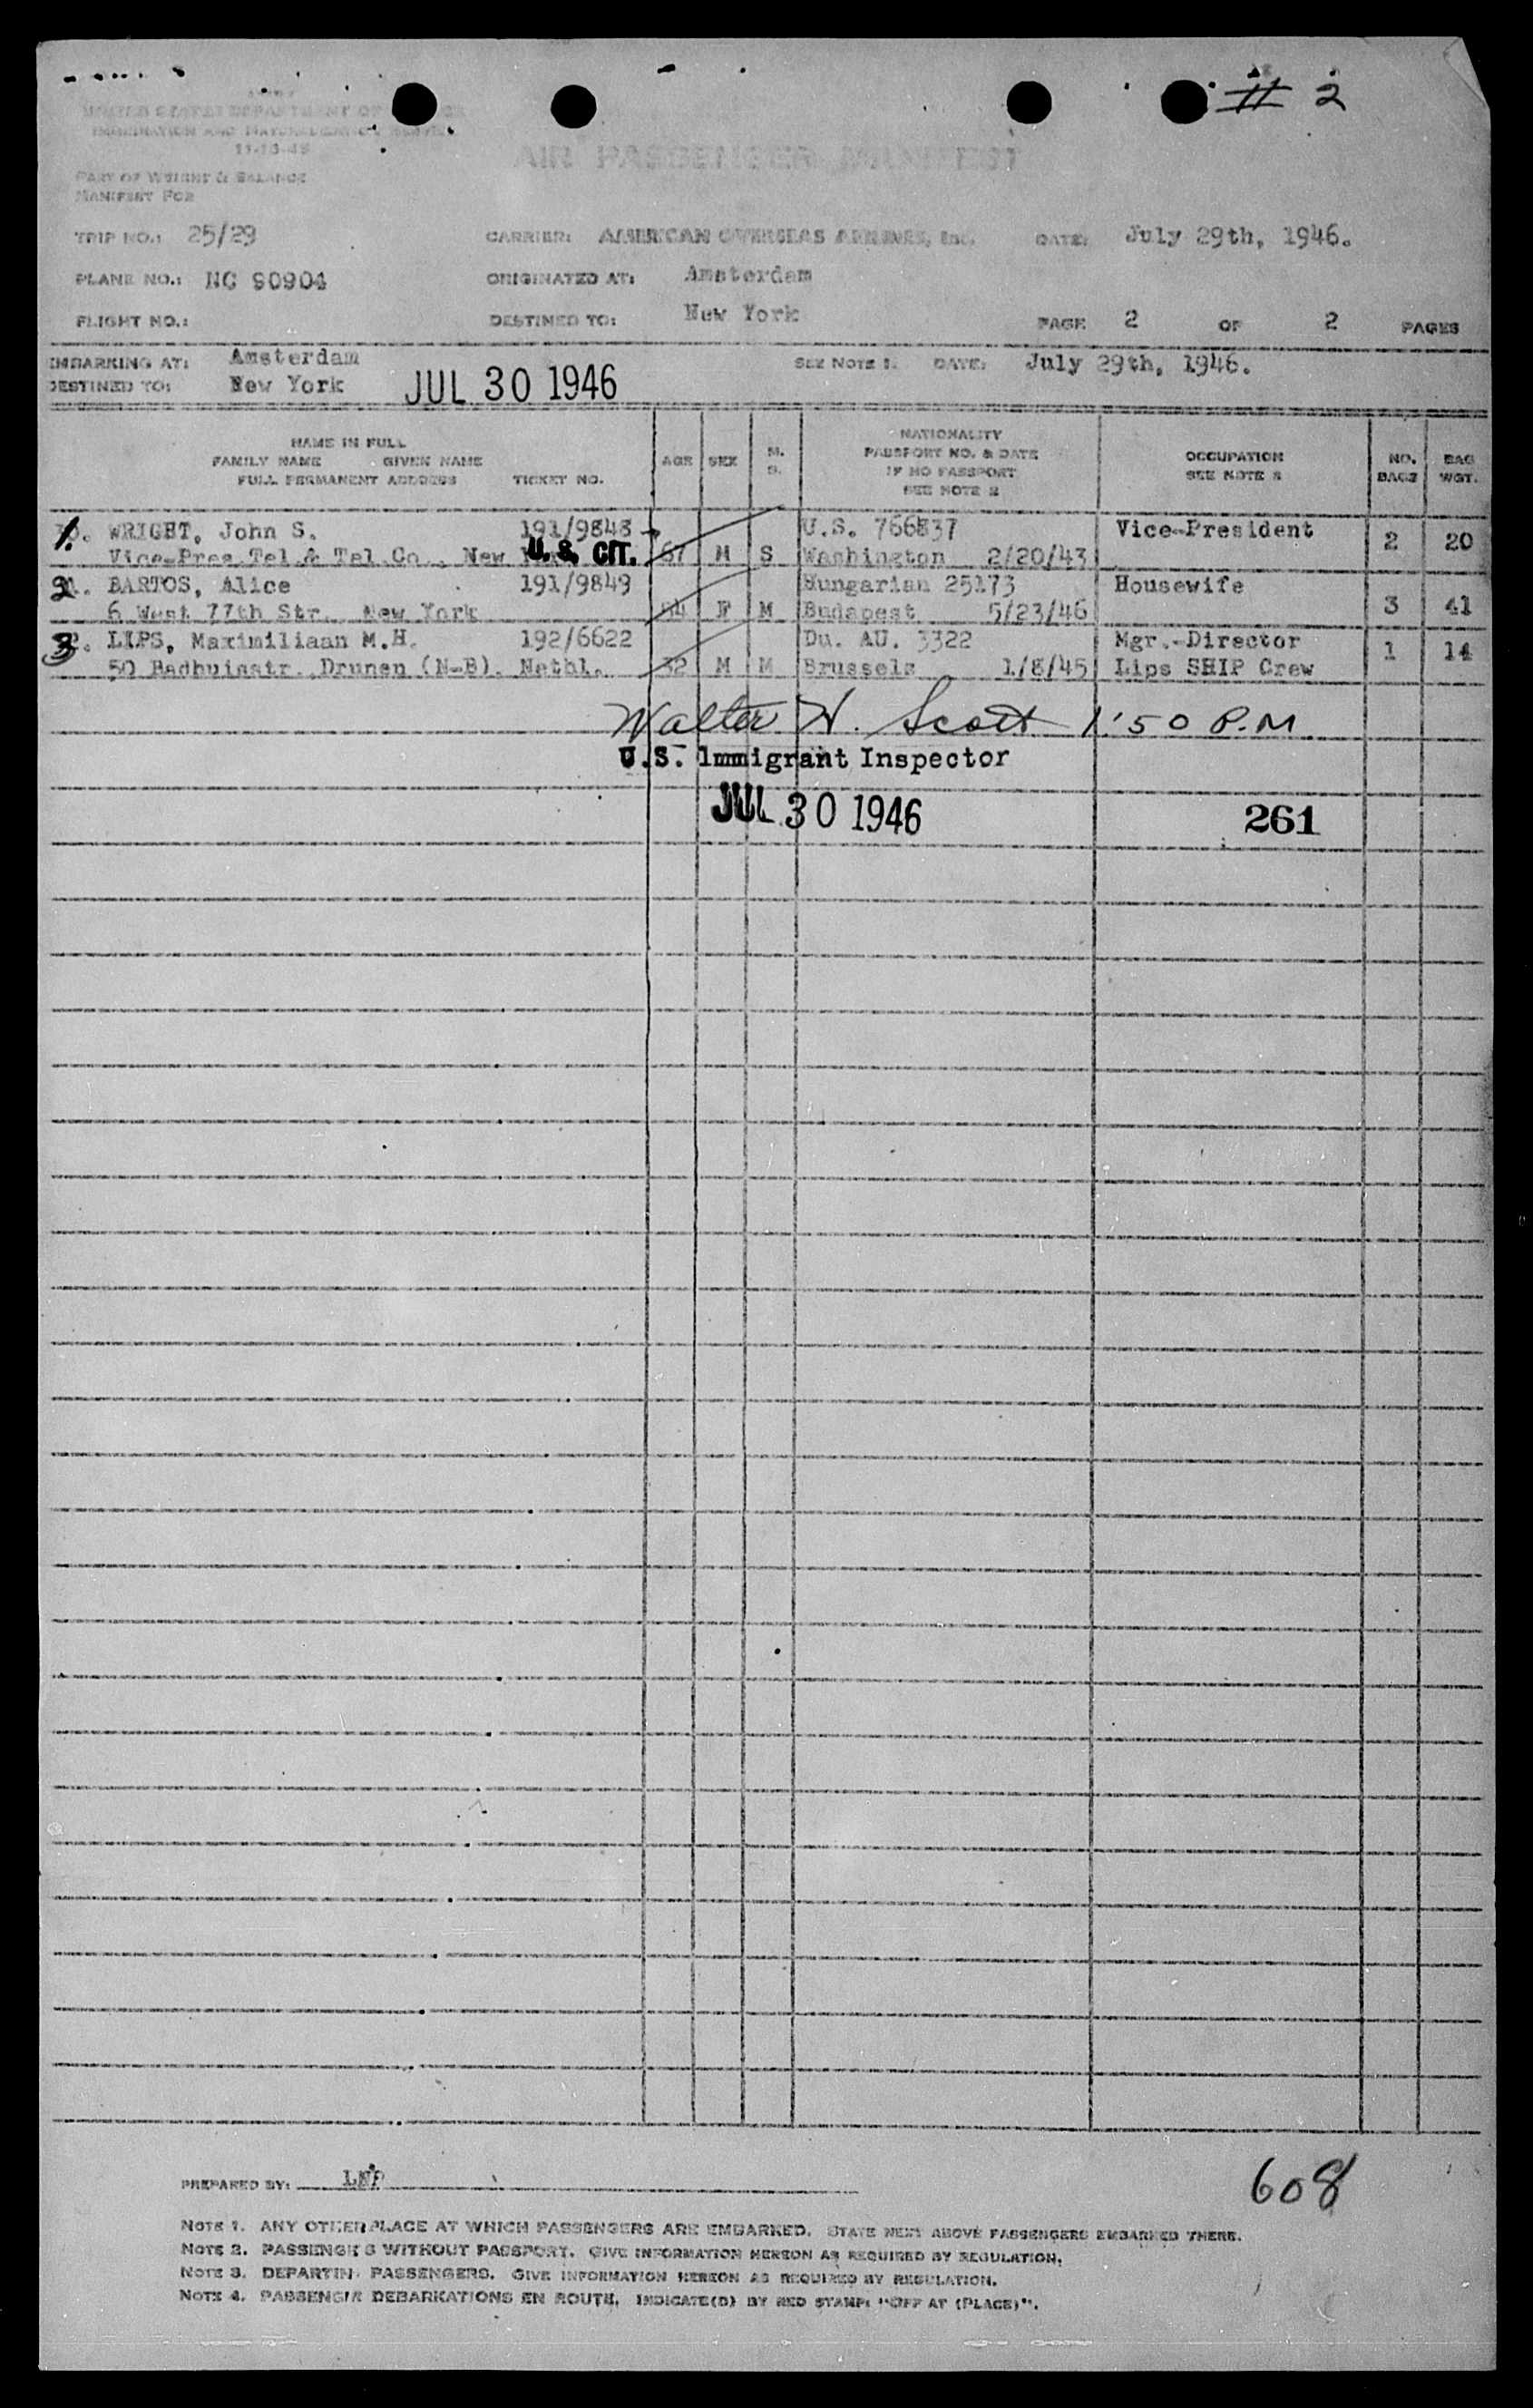 # 2
UNITED STATES DEPARTMENT OF
IMMIGRATION AND NATURALIZATION SERVICE
11-13-45
AIR PASSENGER MANIFEST
PART OF WEIGHT & BALANCE
MANIFEST FOR
TRIP NO.: 25/29 CARRIER: AMERICAN OVERSEAS AIRLINES, Inc. DATE: July 29th, 1946.
PLANE NO.: NC 90904 ORIGINATED AT: Amsterdam
FLIGHT NO.: DESTINED TO: New York PAGE 2 OF 2 PAGES
EMBARKING AT: Amsterdam SEE NOTE 1. DATE: July 29th, 1946.
DESTINED TO: New York JUL 30 1946
NAME IN FULL
FAMILY NAME GIVEN NAME
FULL PERMANENT ADDRESS TICKET NO.
AGE SEX M. S.
NATIONALITY
PASSPORT NO. & DATE
IF NO PASSPORT
SEE NOTE 2
OCCUPATION
SEE NOTE 2
NO. BAGS
BAG WGT.
1. WRIGHT, John S. 191/9848 U.S. 766837 Vice-President
Vice-Pres.Tel.& Tel.Co., New U.S. CIT. 67 M S Washington 2/20/43 2 20
2. BARTOS, Alice 191/9849 Hungarian 25173 Housewife
6 West 77th Str., New York 54 F M Budapest 5/23/46 3 41
3. LIPS, Maximiliaan M.H. 192/6622 Du. AU. 3322 Mgr.-Director
50 Badhuisstr. Drunen (N-B). Nethl. 32 M M Brussels 1/8/45 Lips SHIP Crew 1 14
Walter H. Scott 1:50 P.M.
U.S. Immigrant Inspector
JUL 30 1946 261
PREPARED BY:
608
NOTE 1. ANY OTHER PLACE AT WHICH PASSENGERS ARE EMBARKED. STATE NEXT ABOVE PASSENGERS EMBARKED THERE.
NOTE 2. PASSENGERS WITHOUT PASSPORT. GIVE INFORMATION HEREON AS REQUIRED BY REGULATION.
NOTE 3. DEPARTING PASSENGERS. GIVE INFORMATION HEREON AS REQUIRED BY REGULATION.
NOTE 4. PASSENGER DEBARKATIONS EN ROUTE. INDICATE(D) BY RED STAMP: "OFF AT (PLACE)".